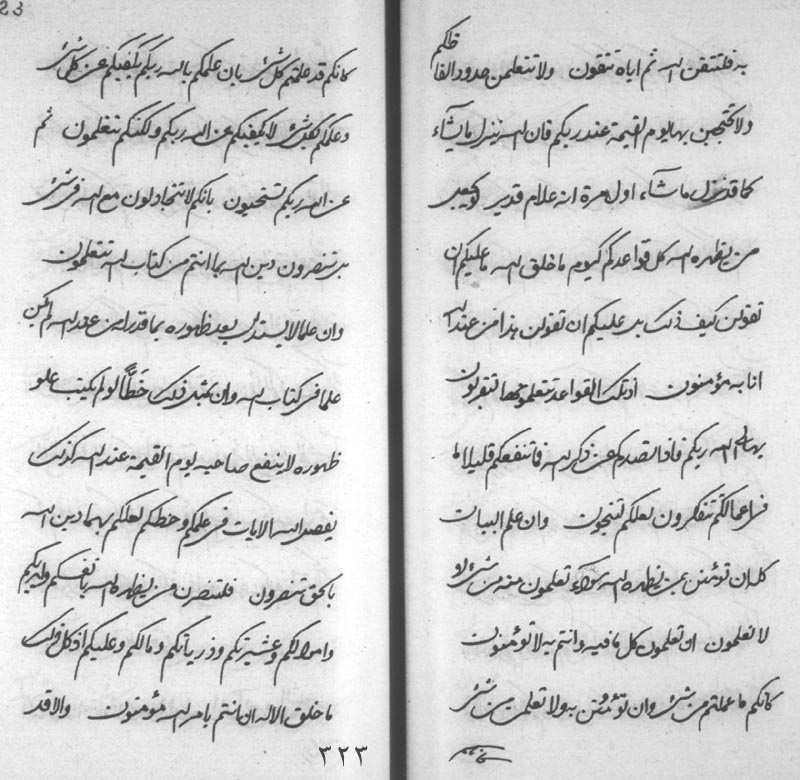 به فلتتقن الله ثم اياه تتقون ولا تتعلمن حدود الفا
ظلكم
ولا تحتجبن بها يوم القيمة عند ربكم فان الله ينزل ما يشاء
كما قد نزل ما شاء اول مرة انه علام قدير
من يظهره الله كل قواعدكم كيوم ما خلق الله ما عليكم ان
تقولن كيف ذلك بل عليكم ان تقولن هذا من عند الله
انا به مؤمنون اذ تلك القواعد تتعلمونها لتقربون
بها الى الله ربكم فاذا تصدكم عن ذكر الله فاتنفعكم قليلا ما
فى اعمالكم تتفكرون لعلكم تنجون وان علم البيان
كله ان تؤمنن بمن يظهره الله سواء تعلمون منه من شئ او
لا تعلمون ان تعلمون كل ما فيه وانتم به لا تؤمنون
كانكم ما عملتم من شئ وان تؤمنن به ولا تعلمن من شئ
كانكم قد علمتم كل شئ بان علمكم بالله ربكم يكفيكم عن كل شئ
وعلمكم بكل شئ لا يكفيكم عن الله ربكم ولكنكم تتعلمون ثم
عن الله ربكم تستحيون بانكم لا تتجادلون مع الله فى شئ
بل تنصرون دين الله بما انتم من كتاب الله تتعلمون
وان علما لا يستدل به بعد ظهوره بما قدر من عند الله لم يكن
علما فى كتاب الله وان بمثل ذلك خطا لو لم يكتب علو
ظهوره لا ينفع صاحبه يوم القيمة عند الله كذلك
يفصل الله الايات فى علمكم وخطكم لعلكم بهما دين الله
بالحق تنصرون فلتنصرن من يظهره الله بانفسكم وابديكم
واموالكم وعشيرتكم وذرياتكم ومالكم وعليكم اذ كل ذلك
ما خلق الا له ان انتم بامر الله مؤمنون والا قد
٣٢٣